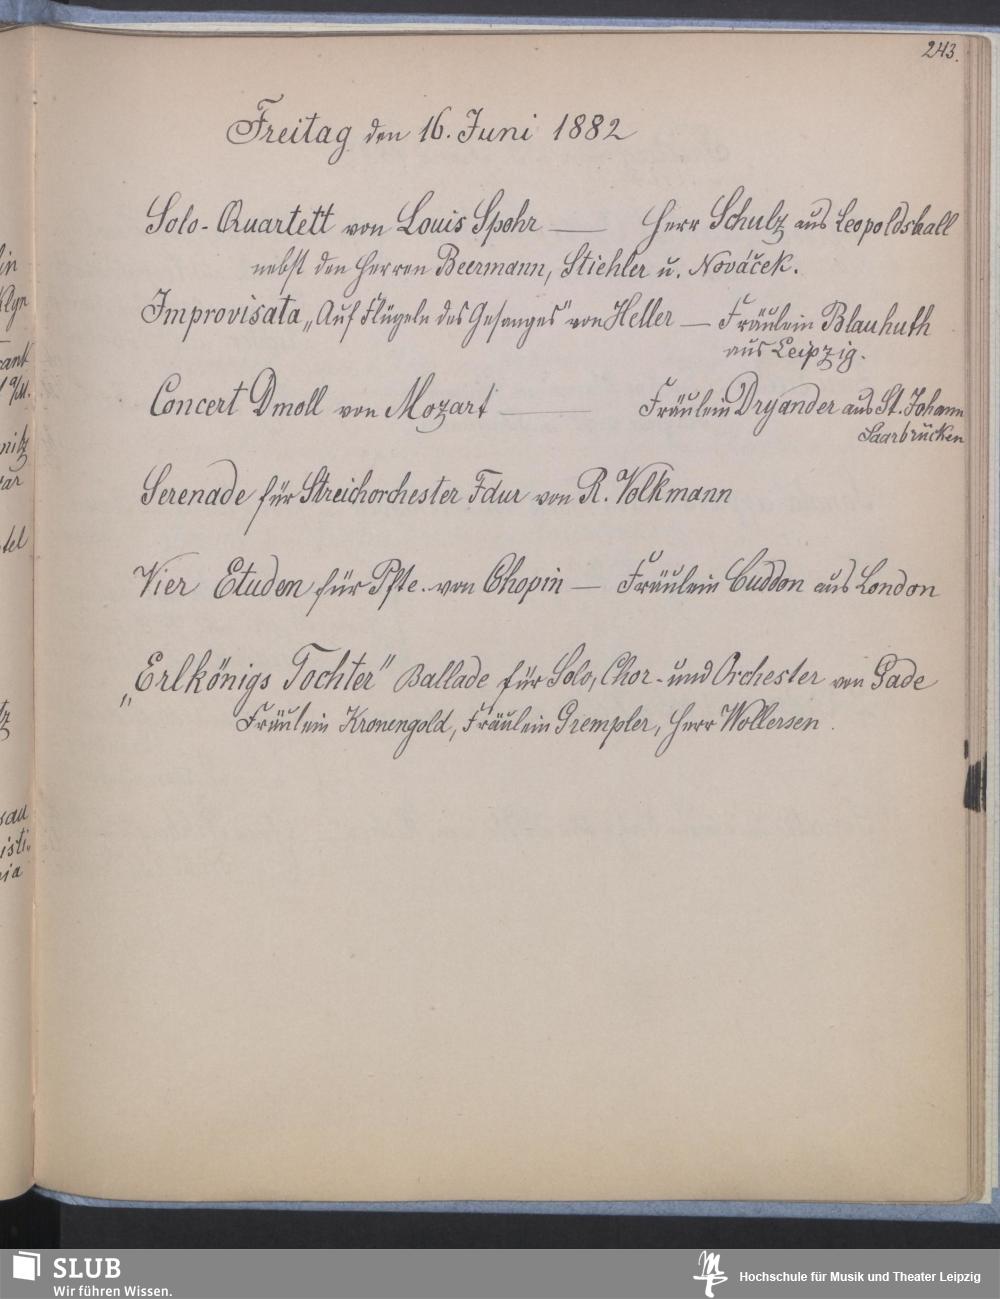 243.
Freitag den 16. Juni 1882
Solo-Quartett von Louis Spohr — Herr Schulz aus Leopoldshall
nebst den Herren Beermann, Stiehler u. Nováček.
Improvisata „Auf Flügeln des Gesanges" von Heller — Fräulein Blauhuth
aus Leipzig.
Concert Dmoll von Mozart — Fräulein Dryander aus St. Johann
Saarbrücken
Serenade für Streichorchester Fdur von R. Volkmann
Vier Etuden für Pfte. von Chopin — Fräulein Cuddon aus London
„Erlkönigs Tochter" Ballade für Solo, Chor- und Orchester von Gade
Fräulein Kronengold, Fräulein Grempler, Herr Wollersen.
SLUB
Wir führen Wissen.
Hochschule für Musik und Theater Leipzig